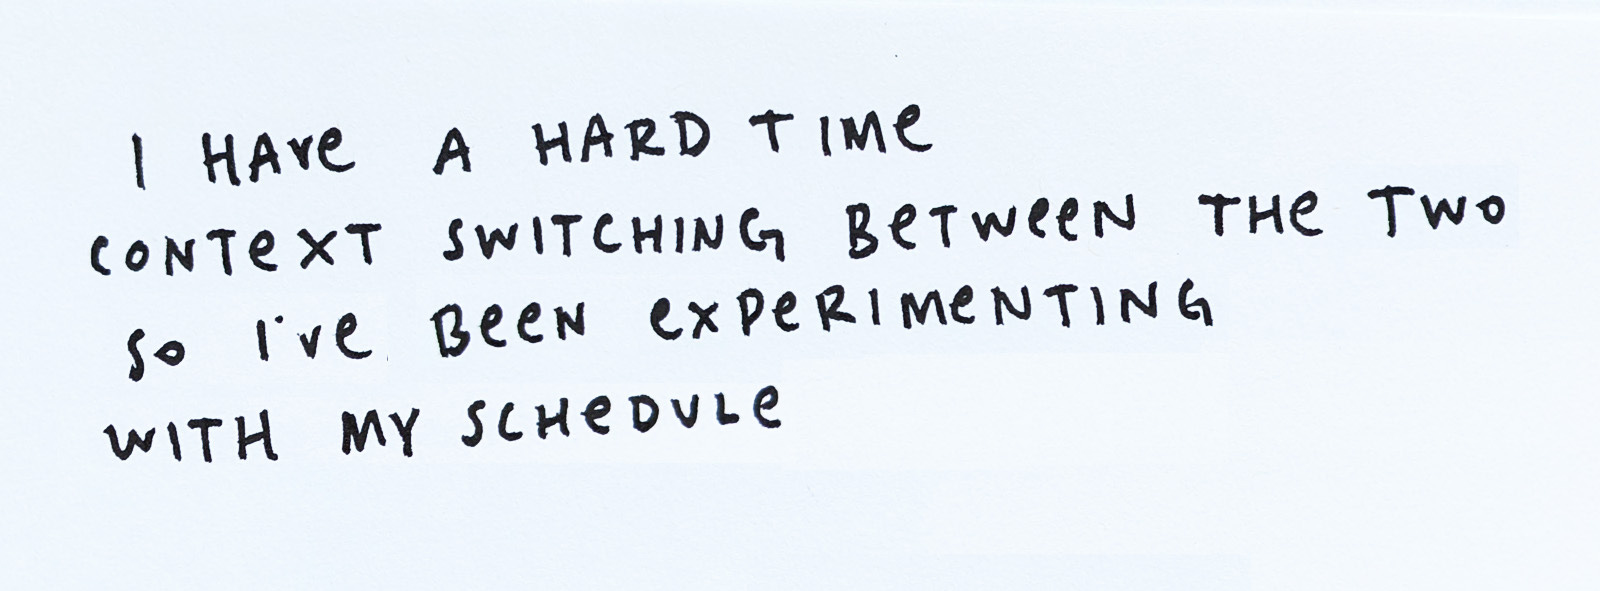 I HAVe A HARD TIMe
CONTeXT SWITCHING BeTWeeN THe TWO
SO I've BeeN exPeRIMeNTING
WITH MY SCHeDULe